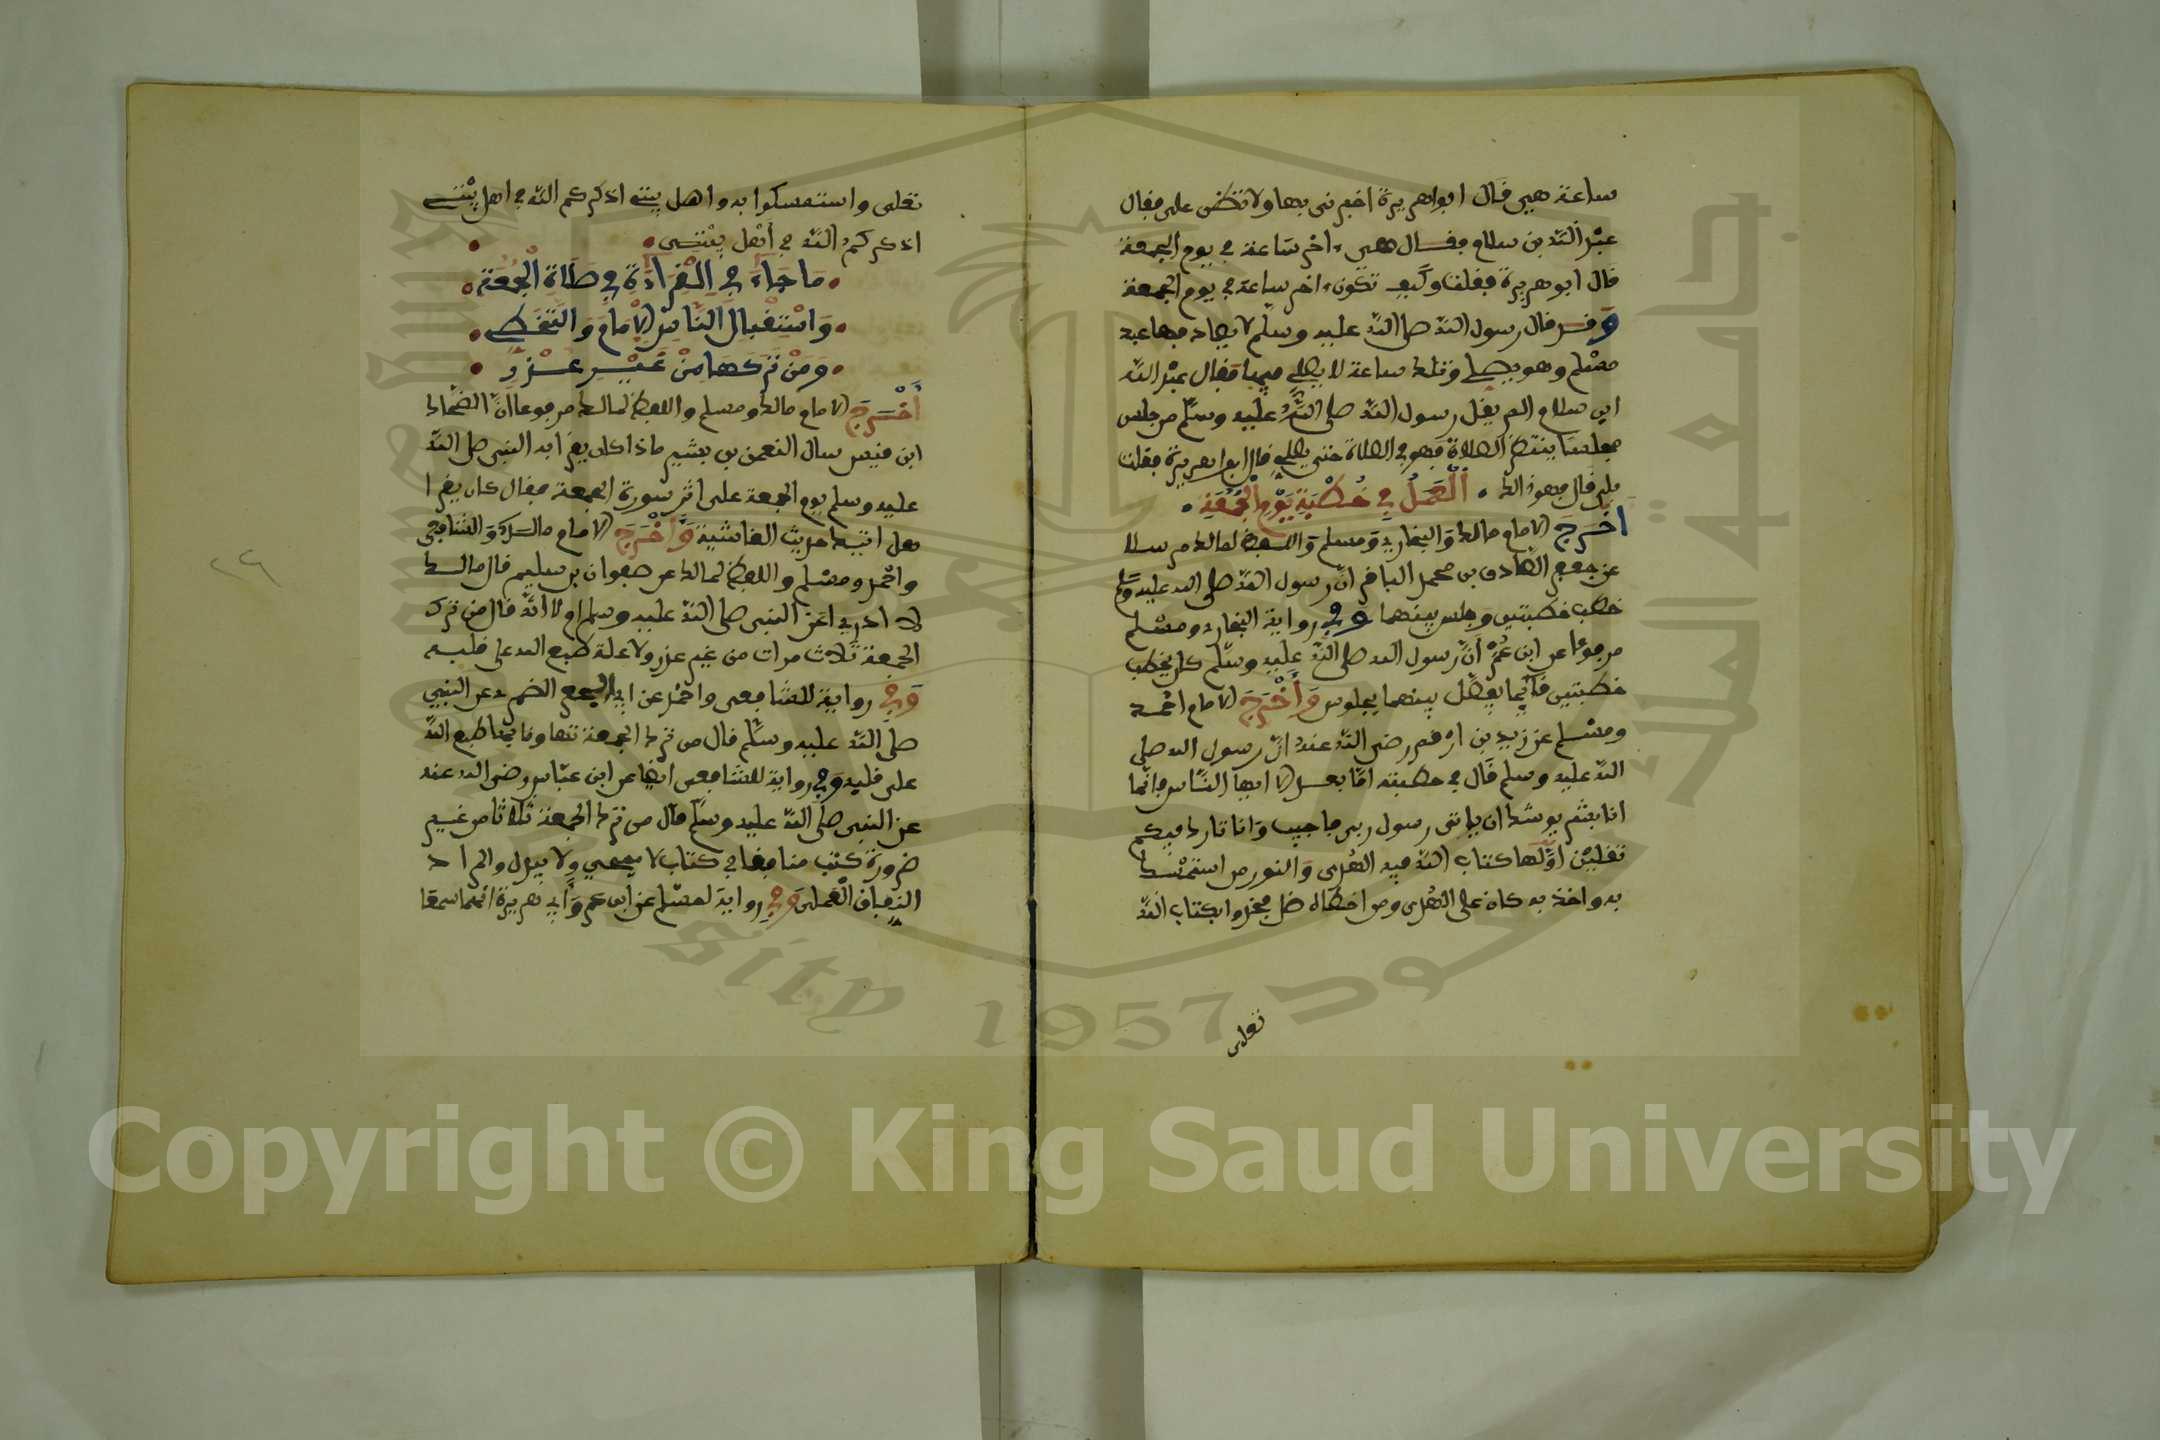 ساعة هي قال ابو اهريرة اخبرنى بها ولا تظن على فقال
عبد الله بن سلام فقال هي ءاخر ساعة في يوم الجمعة
قال ابو هريرة فقلت وكيف تكون ءاخر ساعة في يوم الجمعة
وقد قال رسول الله صلى الله عليه وسلم لا يصادفها عبد
مسلم وهو يصلي وتلك ساعة لا يصلي فيها فقال عبد الله
ابن سلام الم يقل رسول الله صلى الله عليه وسلم من جلس
مجلسا ينتظر الصلاة فهو في الصلاة حتى يصلي قال ابو اهريرة فقلت
بلى قال فهو ذالك • العمل في خطبة يوم الجمعة •
اخرج الامام مالك والبخاري ومسلم واللفظ لمالك مرسلا
عن جعفر الصادق بن محمد الباقر ان رسول الله صلى الله عليه وسلم
خطب خطبتين وجلس بينهما وفي رواية البخاري ومسلم
مرفوعا عن ابن عمر ان رسول الله صلى الله عليه وسلم كان يخطب
خطبتين قائما يفصل بينهما بجلوس واخرج الامام احمد
ومسلم عن زيد بن ارقم رضي الله عنه ان رسول الله صلى
الله عليه وسلم قال في خطبته اما بعد الا ايها الناس فانما
انا بشر يوشك ان ياتي رسول ربى فاجيب وانا تارك فيكم
ثقلين اولها كتاب الله فيه الهدى والنور من استمسك
به واخذ به كان على الهدى ومن اخطاه ضل فخذوا بكتاب الله
تعلى
تعلى واستمسكوا به واهل بيتي اذكركم الله في اهل بيتي
اذكركم الله في اهل بيتي •
• ما جاء في القراءة في صلاة الجمعة •
• واستقبال الناس الامام والتخطي •
• ومن تركها من غير عذر •
اخرج الامام مالك ومسلم واللفظ لمالك مرفوعا ان الضحاك
ابن قيس سال النعمن بن بشير ماذا كان يقرا به النبي صلى الله
عليه وسلم يوم الجمعة على اثر سورة الجمعة فقال كان يقرا
هل اتيك حديث الغاشية واخرج الامام مالك والشافعي
واحمد ومسلم واللفظ لمالك عن صفوان بن سليم قال مالك
لا ادري اعن النبي صلى الله عليه وسلم ام لا انه قال من ترك
الجمعة ثلاث مرات من غير عذر ولا علة طبع الله على قلبه
وفي رواية للشافعي واحمد عن ابي الجعد الضمري عن النبي
صلى الله عليه وسلم قال من ترك الجمعة تهاونا بها طبع الله
على قلبه وفي رواية للشافعي ايضا عن ابن عباس رضي الله عنه
عن النبي صلى الله عليه وسلم قال من ترك الجمعة ثلاثا من غير
ضرورة كتب منافقا في كتاب لا يمحي ولا يبدل والمراد
النفاق العملي وفي رواية لمسلم عن ابن عمر وابي هريرة انهما سمعا
٢٦
جامعة الملك سعود
King Saud University 1957
Copyright © King Saud University